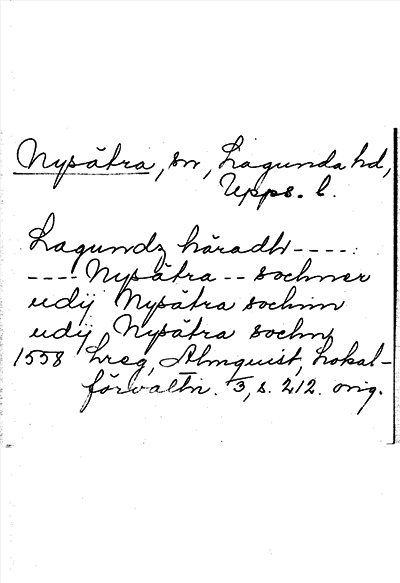 Nysätra, sn, Lagunda hd,
Upps. l.
Lagundz häradh ----.
---- Nysätra -- sochner
udij Nysätra sochnn
udij Nysätra sochn
1558 Lreg, Almquist, Lokal-
förvaltn. 3, s. 212. orig.